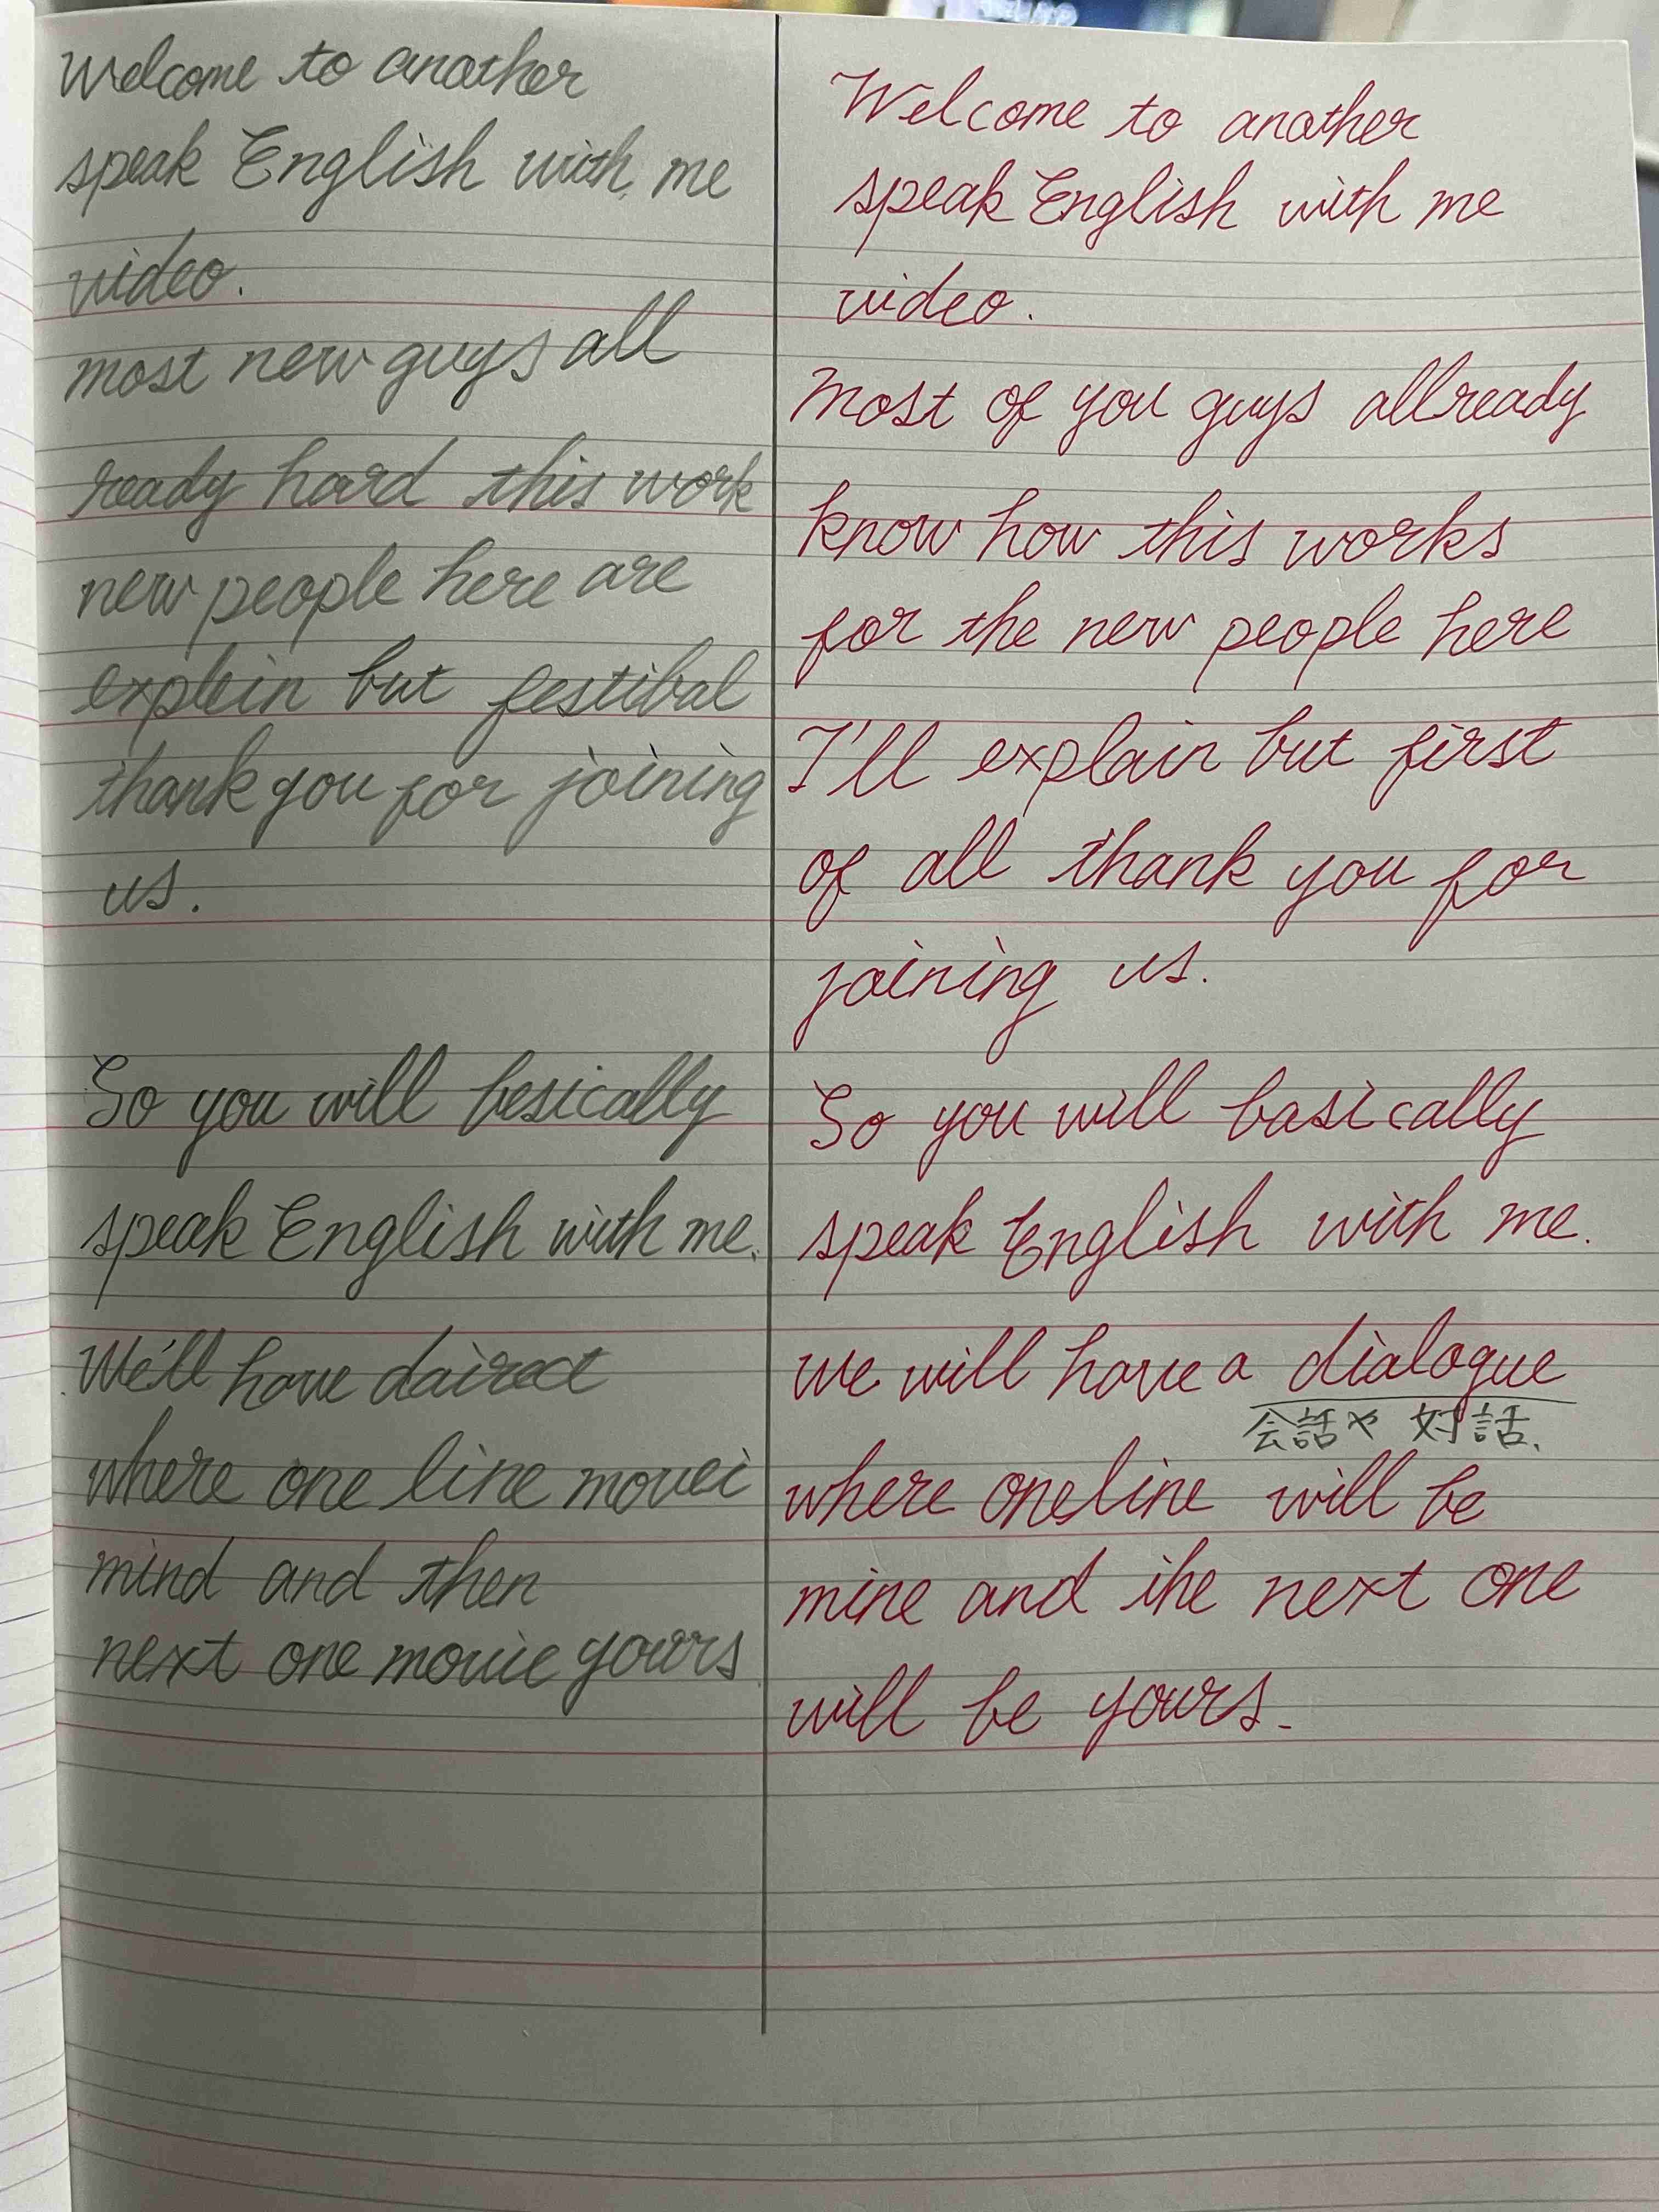 Welcome to another
speak English with me
video.
most new guys all
ready hard this work
new people here are
explein but festibal
thank you for joining
us.
So you will besically
speak English with me.
We'll have dairect
where one line movei
mind and then
next one movie yours
Welcome to another
speak English with me
video.
Most of you guys allready
know how this works
for the new people here
I'll explain but first
of all thank you for
joining us.
So you will basically
speak English with me.
we will have a dialogue
会話や 対話、
where one line will be
mine and the next one
will be yours.